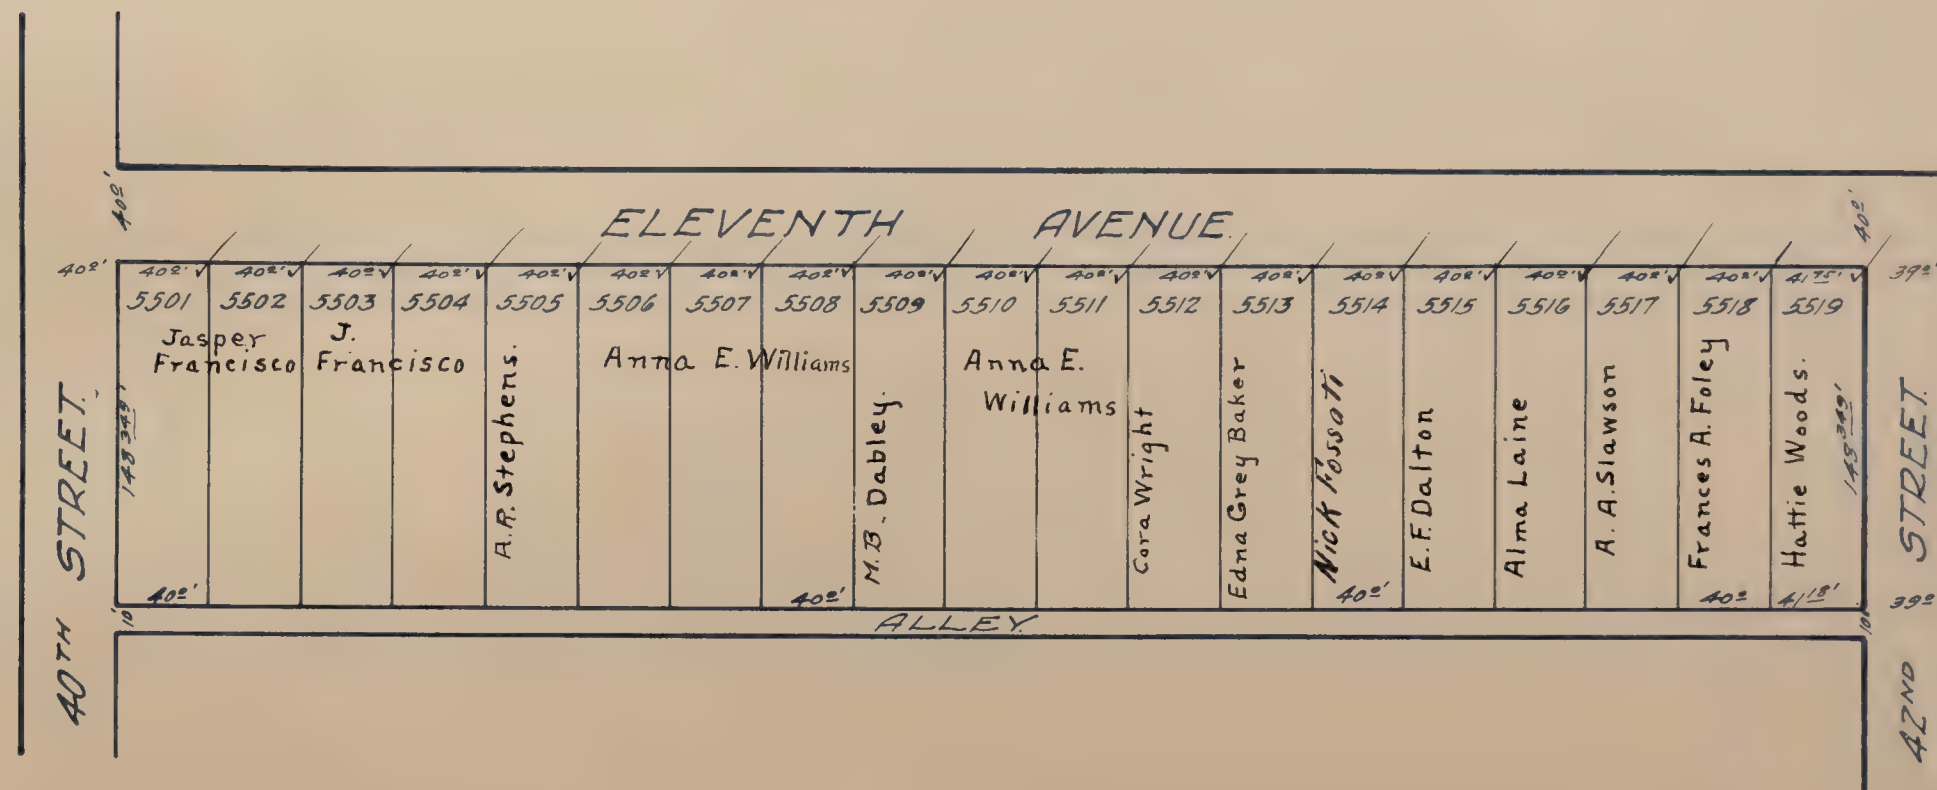 40⁰'
40⁰'
ELEVENTH AVENUE.
40⁰' 40⁰' 40⁰' 40⁰' 40⁰' 40⁰' 40⁰' 40⁰' 40⁰' 40⁰' 40⁰' 40⁰' 40⁰' 40⁰' 40⁰' 40⁰' 40⁰' 40⁰' 40⁰' 41⁷⁵' 39⁰'
5501 5502 5503 5504 5505 5506 5507 5508 5509 5510 5511 5512 5513 5514 5515 5516 5517 5518 5519
Jasper
Francisco
J.
Francisco
A.R. Stephens.
Anna E. Williams
M.B. Dabley.
Anna E.
Williams
Cora Wright
Edna Grey Baker
Nick Fossati
E.F. Dalton
Alma Laine
A. A. Slawson
Frances A. Foley
Hattie Woods.
148³⁴⁹'
148³⁴⁹'
40⁰' 40⁰' 40⁰' 40⁰ 41¹⁸' 39⁰
10'
ALLEY.
10'
40TH STREET.
42ND STREET.